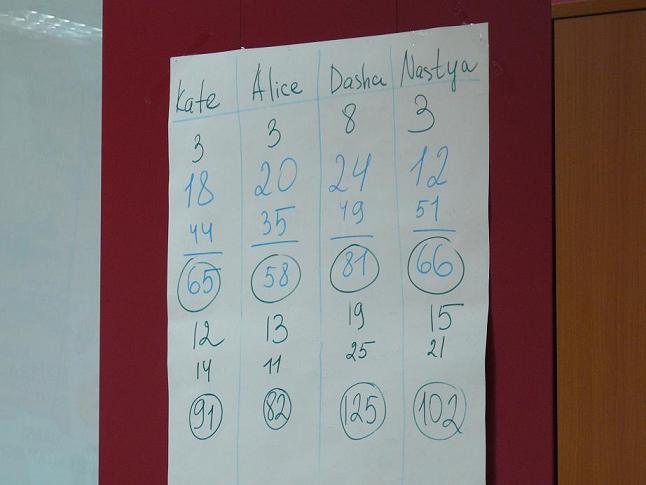 Kate Alice Dasha Nastya
3 3 8 3
18 20 24 12
44 35 49 51
65 58 81 66
12 13 19 15
14 11 25 21
91 82 125 102